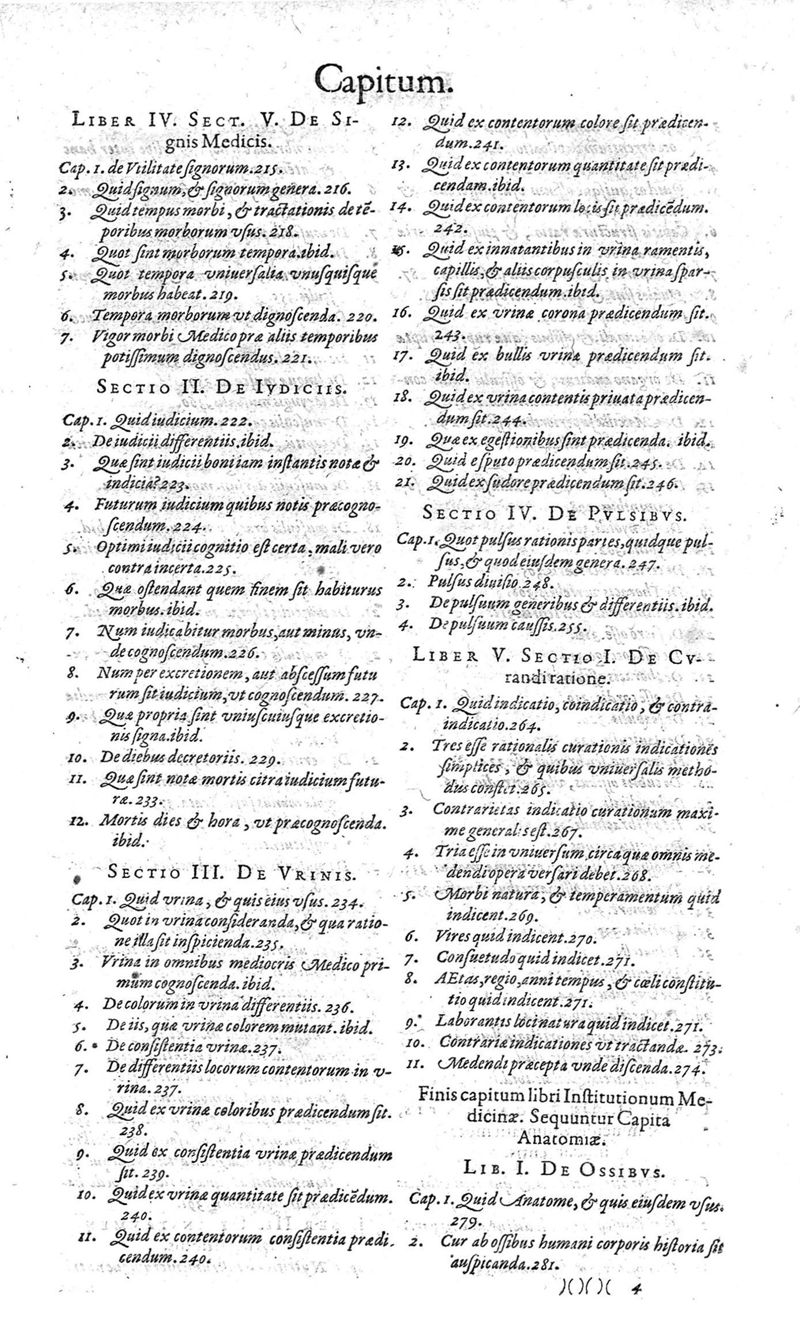 Capitum.
LIBER IV. SECT. V. DE SI-
gnis Medicis.
Cap. 1. de Vtilitate signorum. 215.
2. Quid signum, & signorum genera. 216.
3. Quid tempus morbi, & tractationis de tē-
poribus morborum vsus. 218.
4. Quot sint morborum tempora. ibid.
5. Quot tempora vniuersalia vnusquisque
morbus habeat. 219.
6. Tempora morborum vt dignoscenda. 220.
7. Vigor morbi Medico præ aliis temporibus
potissimum dignoscendus. 221.
SECTIO II. DE IVDICIIS.
Cap. 1. Quid iudicium. 222.
2. De iudicii differentiis. ibid.
3. Quæ sint iudicii boni iam instantis notæ &
indicia? 223.
4. Futurum iudicium quibus notis præcogno-
scendum. 224.
5. Optimi iudicii cognitio est certa, mali vero
contra incerta. 225.
6. Quæ ostendant quem finem sit habiturus
morbus. ibid.
7. Num iudicabitur morbus, aut minus, vn-
de cognoscendum. 226.
8. Num per excretionem, aut abscessum futu
rum sit iudicium, vt cognoscendum. 227.
9. Quæ propria sint vniuscuiusque excretio-
nis signa. ibid.
10. De diebus decretoriis. 229.
11. Quæ sint notæ mortis citra iudicium futu-
ræ. 233.
12. Mortis dies & hora, vt præcognoscenda.
ibid.
SECTIO III. DE VRINIS.
Cap. 1. Quid vrina, & quis eius vsus. 234.
2. Quot in vrina consideranda, & qua ratio-
ne illa sit inspicienda. 235.
3. Vrina in omnibus mediocris Medico pri-
mum cognoscenda. ibid.
4. De colorum in vrina differentiis. 236.
5. De iis, quæ vrinæ colorem mutant. ibid.
6. De consistentia vrinæ. 237.
7. De differentiis locorum contentorum in v-
rina. 237.
8. Quid ex vrinæ coloribus prædicendum sit.
238.
9. Quid ex consistentia vrinæ prædicendum
sit. 239.
10. Quid ex vrinæ quantitate sit prædicēdum.
240.
11. Quid ex contentorum consistentia prædi-
cendum. 240.
12. Quid ex contentorum colore sit prædicen-
dum. 241.
13. Quid ex contentorum quantitate sit prædi-
cendam. ibid.
14. Quid ex contentorum locis sit prædicēdum.
242.
15. Quid ex innatantibus in vrina ramentis,
capillis, & aliis corpusculis in vrina spar-
sis sit prædicendum. ibid.
16. Quid ex vrinæ corona prædicendum sit.
243.
17. Quid ex bullis vrinæ prædicendum sit.
ibid.
18. Quid ex vrina contentis priuata prædicen-
dum sit. 244.
19. Quæ ex egestionibus sint prædicenda. ibid.
20. Quid e sputo prædicendum sit. 245.
21. Quid ex sudore prædicendum sit. 246.
SECTIO IV. DE PVLSIBVS.
Cap. 1. Quot pulsus rationis partes, quidque pul-
sus, & quod eiusdem genera. 247.
2. Pulsus diuisio. 248.
3. De pulsuum generibus & differentiis. ibid.
4. De pulsuum caussis. 255.
LIBER V. SECTIO I. DE CV-
randi ratione.
Cap. 1. Quid indicatio, coindicatio, & contra-
indicatio. 264.
2. Tres esse rationalis curationis indicationes
simplices, & quibus vniuersalis metho-
dus constet. 265.
3. Contrarietas indicatio curationum maxi-
me generalis est. 267.
4. Tria esse in vniuersum, circa quæ omnis me-
dendi opera versari debet. 268.
5. Morbi natura, & temperamentum quid
indicent. 269.
6. Vires quid indicent. 270.
7. Consuetudo quid indicet. 271.
8. AEtas, regio, anni tempus, & cœli constitu-
tio quid indicent. 271.
9. Laborantis loci natura quid indicet. 271.
10. Contrariæ indicationes vt tractandæ. 273.
11. Medendi præcepta vnde discenda. 274.
Finis capitum libri Institutionum Me-
dicinæ. Sequuntur Capita
Anatomiæ.
LIB. I. DE OSSIBVS.
Cap. 1. Quid Anatome, & quis eiusdem vsus.
279.
2. Cur ab ossibus humani corporis historia sit
auspicanda. 281.
)()()( 4